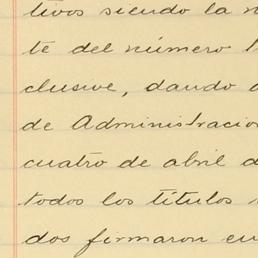 tivos siendo la
te del número
clusive, dando
de Administracio
cuatro de abril d
todos los títulos
dos firmaron en